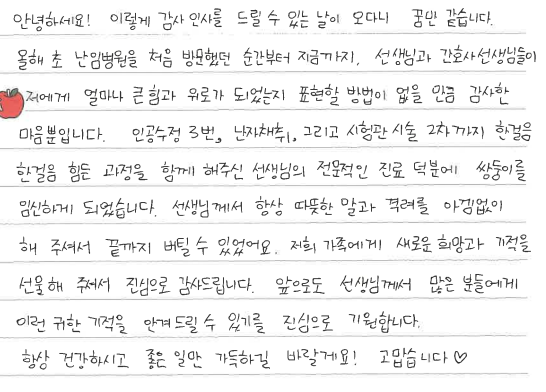 안녕하세요! 이렇게 감사 인사를 드릴 수 있는 날이 오다니 꿈만 같습니다.
올해 초 난임병원을 처음 방문했던 순간부터 지금까지, 선생님과 간호사선생님들이
저에게 얼마나 큰 힘과 위로가 되었는지 표현할 방법이 없을 만큼 감사한
마음뿐입니다. 인공수정 3번, 난자채취, 그리고 시험관 시술 2차까지 한걸음
한걸음 힘든 과정을 함께 해주신 선생님의 전문적인 진료 덕분에 쌍둥이를
임신하게 되었습니다. 선생님께서 항상 따뜻한 말과 격려를 아낌없이
해 주셔서 끝까지 버틸 수 있었어요. 저희 가족에게 새로운 희망과 기적을
선물해 주셔서 진심으로 감사드립니다. 앞으로도 선생님께서 많은 분들에게
이런 귀한 기적을 안겨드릴 수 있기를 진심으로 기원합니다.
항상 건강하시고 좋은 일만 가득하길 바랄게요! 고맙습니다♡